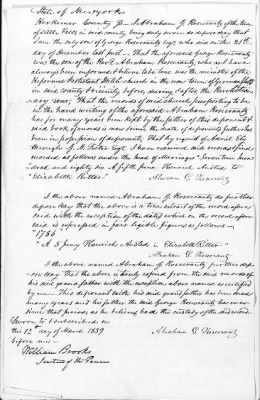 State of New York
Herkimer County ss. I Abraham G. Rosecrantz of the town
of Little Falls in said county being duly sworn do depose & say that I
am the only son of George Rosecrantz Esqr. who died on the 21st
day of December last past. That the aforesaid George Rosecrantz
was the son of the Revd. Abraham Rosecrantz who as I have
always been informed & believe to be true was the minister of the
Reformed Protestant Dutch church in the now town of German flatts
in said county & vicinity before, during & after the Revolution-
ary war. That the records of said church, purporting to be
in the hand writing of the aforesaid Abraham Rosecrantz
has for many years been kept by the father of this deponent &
said book of records is now since the death of deponents father
been in possession of deponent. That by request of
I have examined said records & find
recorded as follows under the head of Marriages Seventeen hun-
dred and eighty six
Elizabeth Ritter
Abraham G. Rosecrantz
I the above named Abraham G. Rosecrantz do further
depose & say that the above is a true extract of the record afore-
said with the exception of the dates which on the record afore-
said is expressed in fair legible figures as follows
1786
Elizabeth Ritter
Abraham G. Rosecrantz
I the above named Abraham G. Rosecrantz further dep-
ose & say that the above is truly copied from the said records of
his said grand father with the exception above named as certified
by me. This deponent saith his said grandfather has been dead
many years and his father the said George Rosecrantz has ever
since that period, as he believes had the custody of the said record
Sworn to & subscribed on
this 13th day of March 1839
Abraham G. Rosecrantz
before me
William Brooks
Justice of the Peace